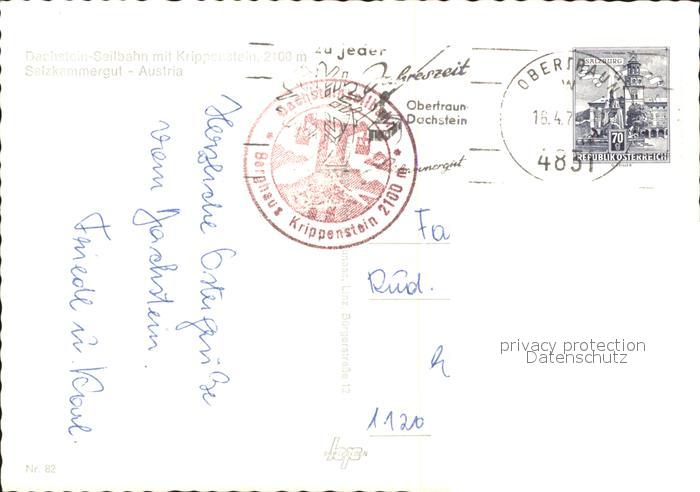 Dachstein-Seilbahn mit Krippenstein, 2100 m
Salzkammergut - Austria
zu jeder
Jahreszeit
Obertraun-
Dachstein
OBERTRAUN
16.4.7
4831
SALZBURG
70
REPUBLIK ÖSTERREICH
Dachsteinseilbahn
Berghaus Krippenstein 2100 m
Herzliche Ostergrüße
vom Dachstein.
Friedl u. Karl.
Fa
Rud.
1120
Linz, Bürgerstraße 12
privacy protection
Datenschutz
Nr. 82